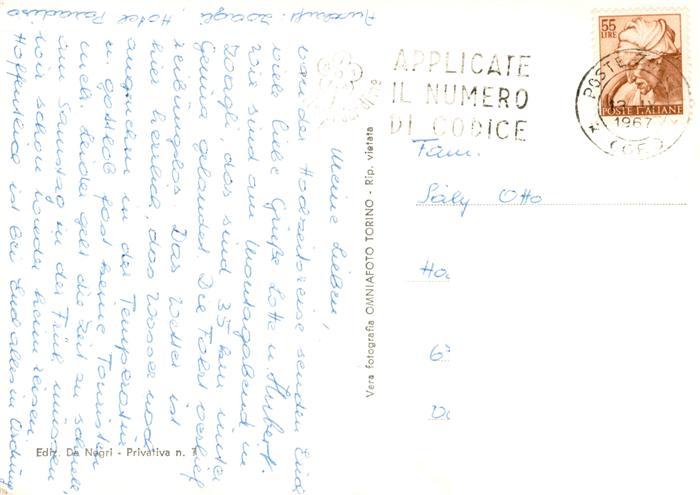 Meine Lieben,
von der Hochzeitsreise senden Euch
viele liebe Grüße Lotte u. Hubert.
Wir sind am Montagabend in
Zoagli, das sind 35 km hinter
Genua gelandet. Die Fahrt verlief
reibungslos. Das Wetter ist
hier herrlich, das Wasser noch
angenehm in der Temperatur
u. Gottlob fast keine Touristen
mehr. Leider geht die Zeit zu schnell,
am Samstag in der Früh müssen
wir schon wieder heim reisen.
Hoffentlich ist bei Euch alles in Ordnung
Zoagli, Hotel Paradiso
Ediz. De Negri - Privativa n. 7
Vera fotografia OMNIAFOTO TORINO - Rip. vietata
APPLICATE
IL NUMERO
DI CODICE
55
LIRE
POSTE ITALIANE
POSTE
1967
Fam.
Sály Otto
Ho